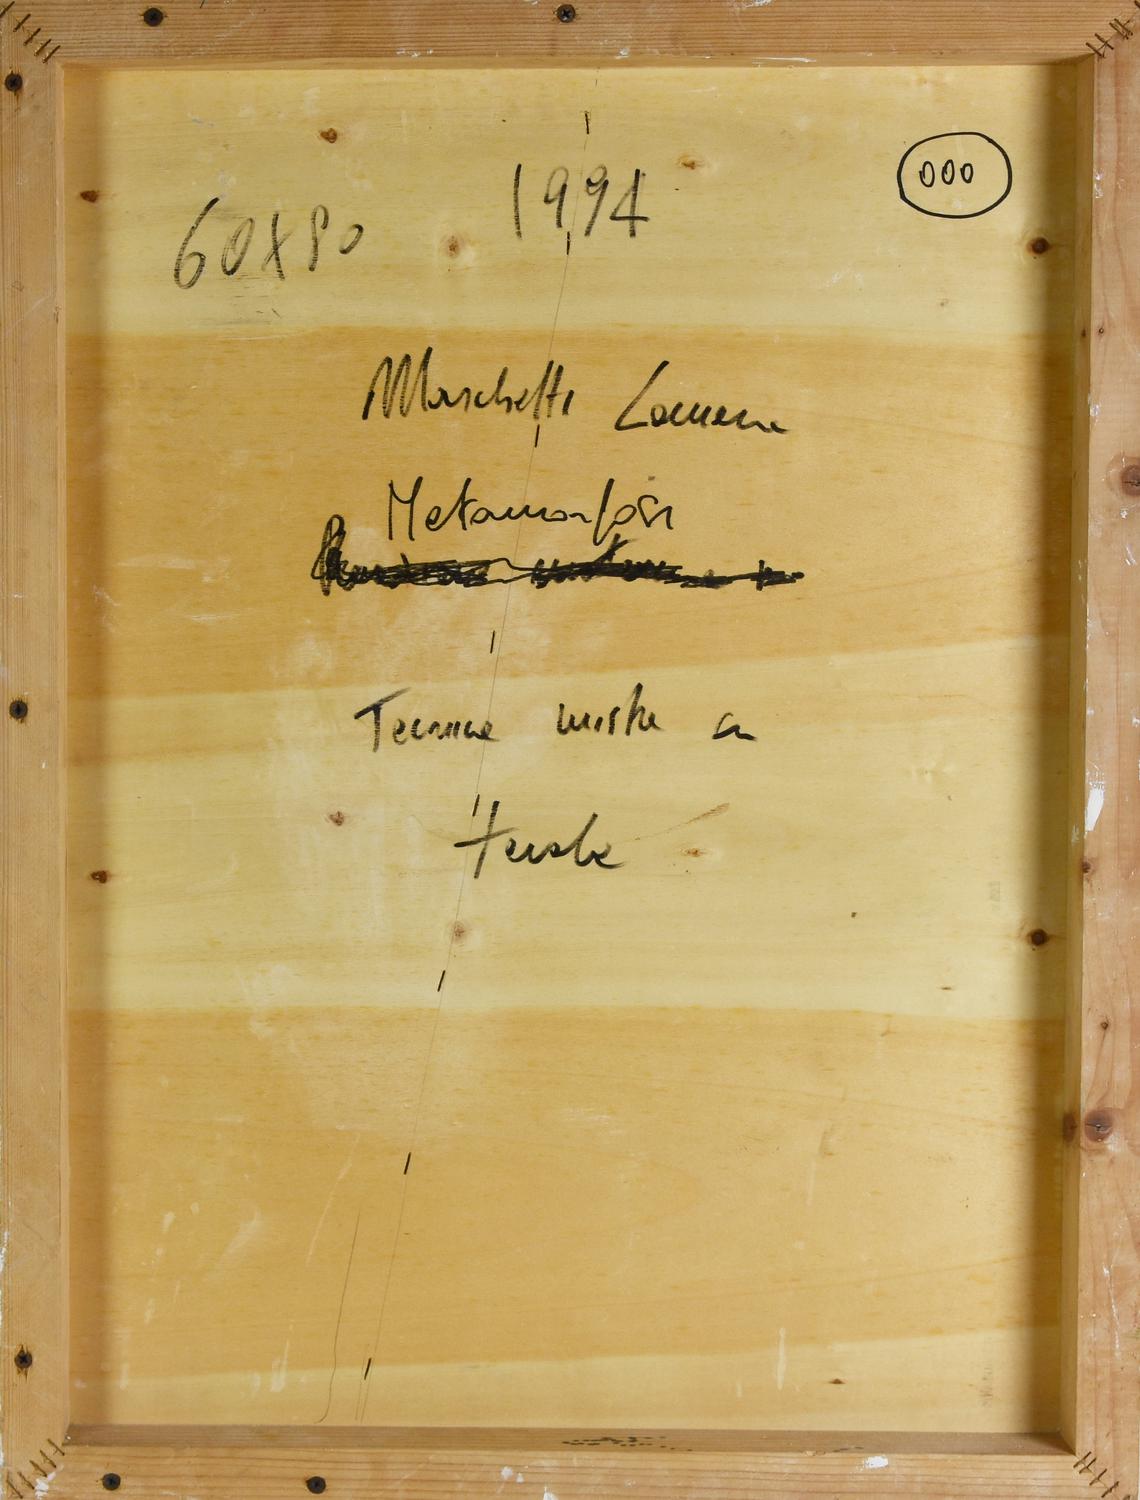 1994
000
60x80
Marchetti Lorena
Metamorfosi
Tecnica mista su
tavola